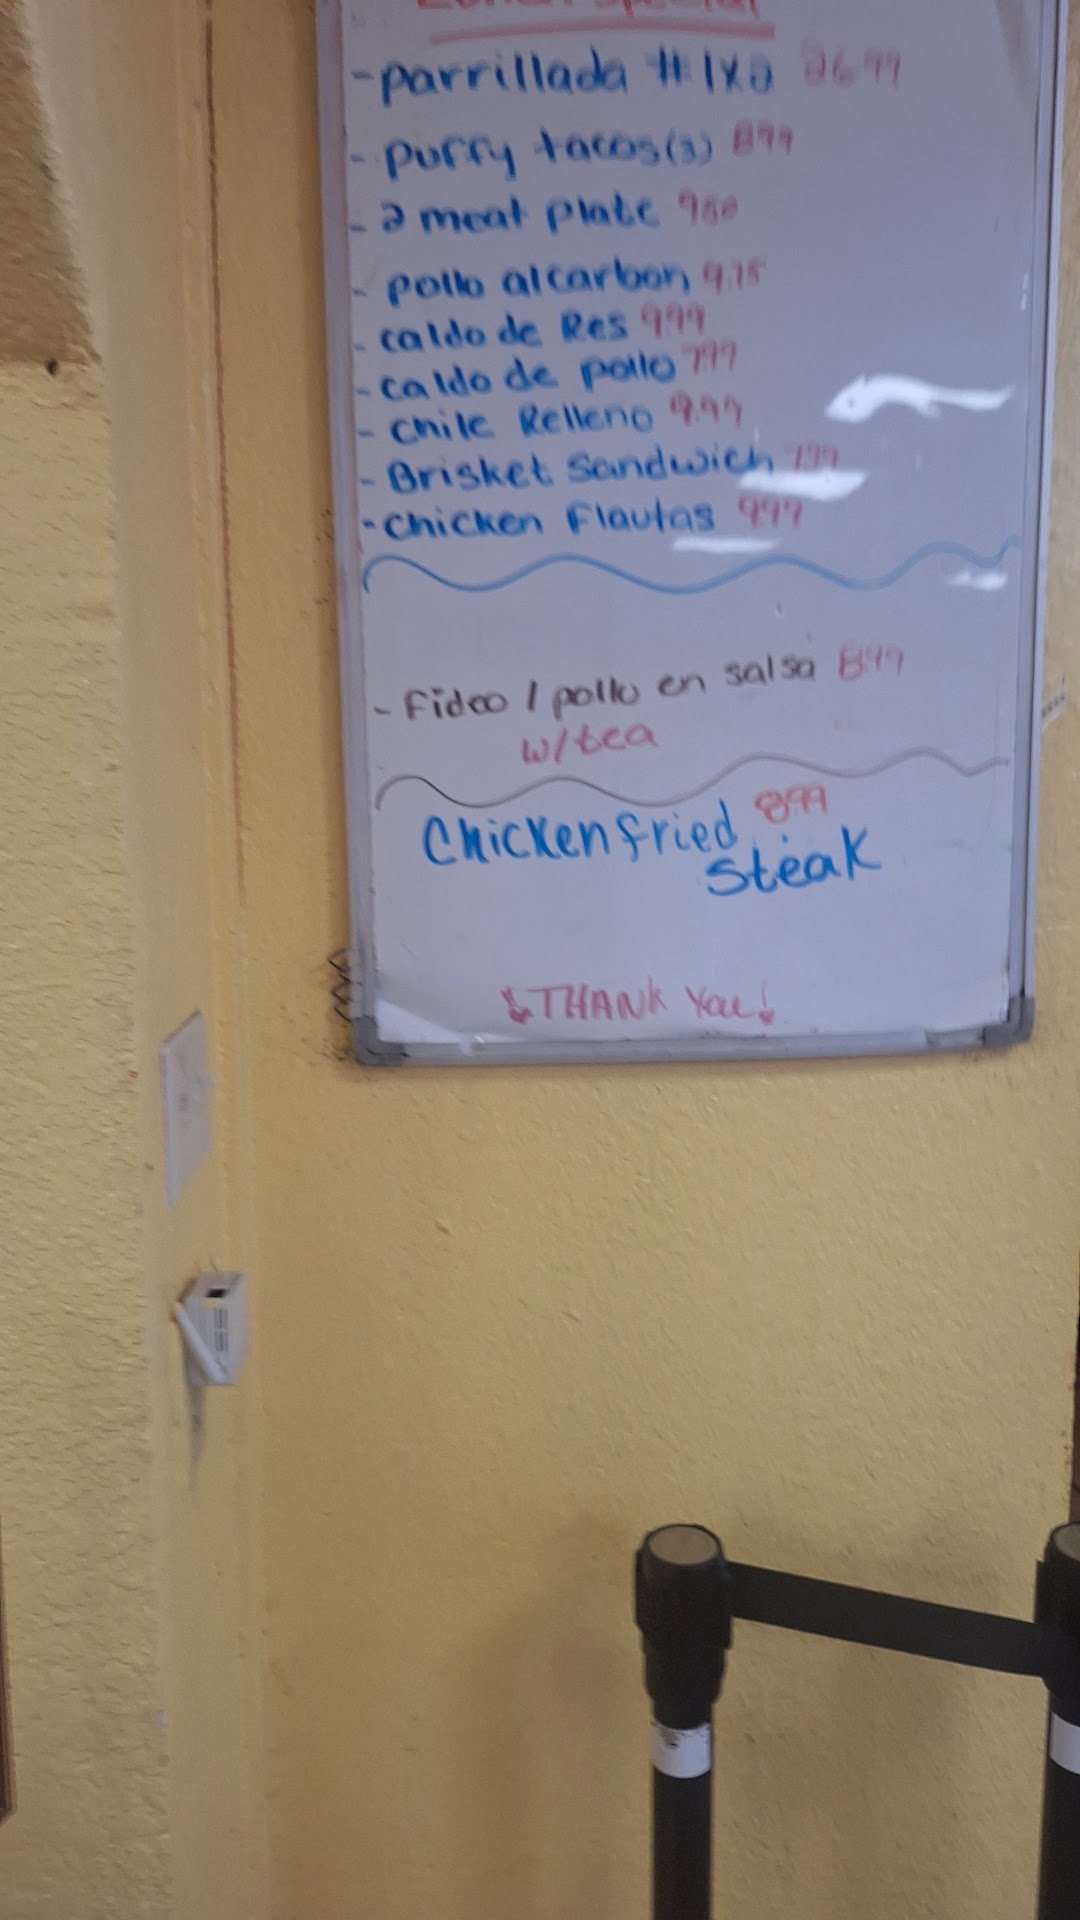 Lunch Special
-parrillada #1x2 26.99
- puffy tacos(3) 899
- 2 meat plate 950
- pollo alcarbon 9.75
- caldo de Res 999
- caldo de pollo 7.99
- chile Relleno 9.99
- Brisket Sandwich 799
-chicken Flautas 999
- Fideo / pollo en salsa 899
w/tea
Chicken fried 899
steak
THANK You!